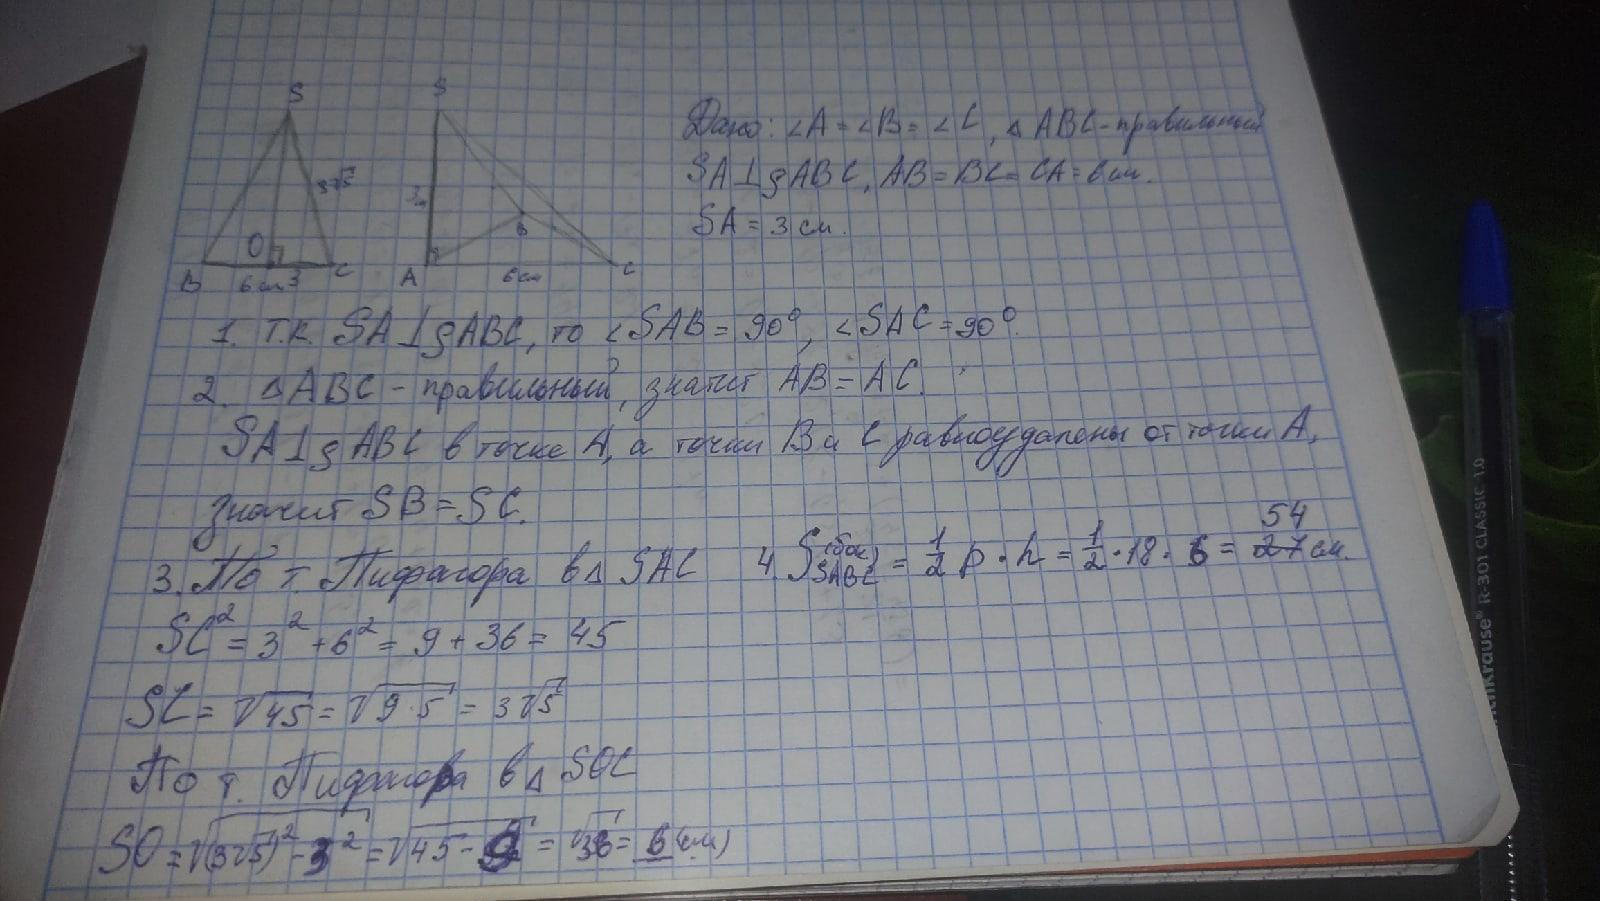 S
S
3√5
3 см
O
B
6 см 3
C
A
B
6 см
C
Дано: ∠A = ∠B = ∠C, △ ABC - правильный
SA ⊥ g ABC, AB = BC = CA = 6 см.
SA = 3 см.
1. Т.к. SA ⊥ g ABC, то ∠SAB = 90°, ∠SAC = 90°.
2. △ ABC - правильный, значит AB = AC.
SA ⊥ g ABC в точке A, а точки B и C равноудалены от точки A,
значит SB = SC.
3. По т. Пифагора в △ SAC
SC² = 3² + 6² = 9 + 36 = 45
SC = √45 = √9·5 = 3√5
По т. Пифагора в △ SOC
SO = √(3√5)² - 3² = √45 - 9 = √36 = 6 (см)
4. S SABC (бок) = 1/2 p · h = 1/2 · 18 · 6 = 27 54 см.
R-301 CLASSIC 1.0
ichKrause®